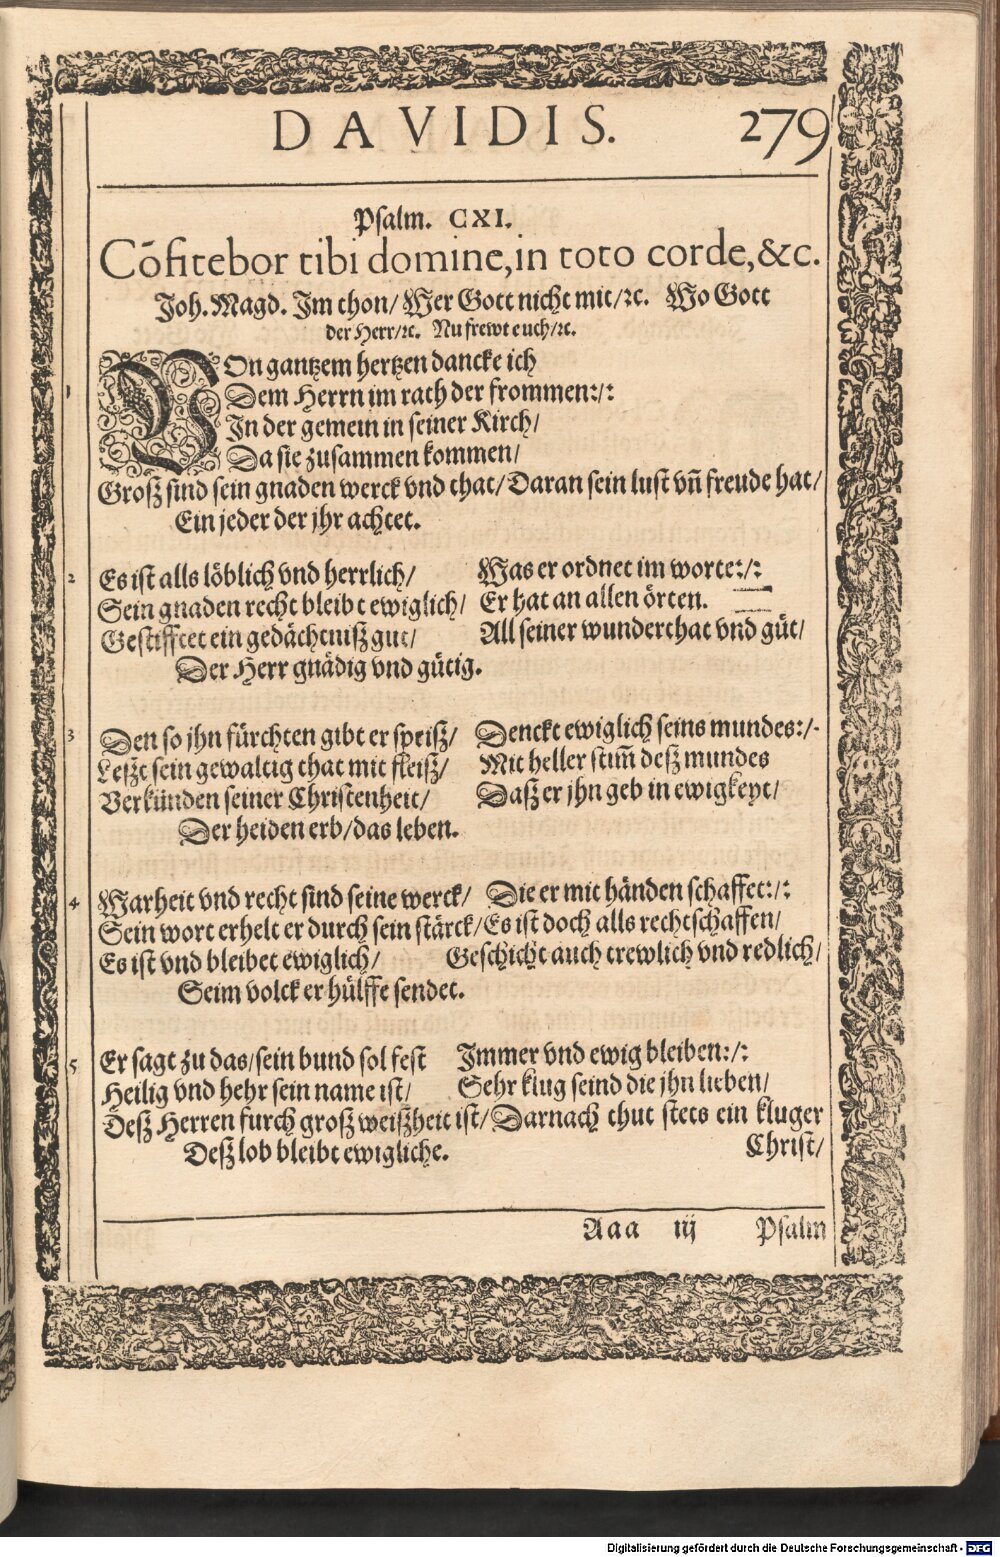 DAVIDIS. 279
Psalm. CXI.
Cōfitebor tibi domine, in toto corde, &c.
Joh. Magd. Im thon/ Wer Gott nicht mit/ꝛc. Wo Gott
der Herr/ꝛc. Nu frewt euch/ꝛc.
1 VOn gantzem hertzen dancke ich
Dem Herrn im rath der frommen:/:
In der gemein in seiner Kirch/
Da sie zusammen kommen/
Groß sind sein gnaden werck vnd that/ Daran sein lust vñ freude hat/
Ein jeder der jhr achtet.
2 Es ist alls löblich vnd herrlich/ Was er ordnet im worte:/:
Sein gnaden recht bleibt ewiglich/ Er hat an allen örten.
Gestifftet ein gedächtniß gut/ All seiner wunderthat vnd güt/
Der Herr gnädig vnd gütig.
3 Den so jhn fürchten gibt er speiß/ Denckt ewiglich seins mundes:/.
Leßt sein gewaltig that mit fleiß/ Mit heller stim̃ deß mundes
Verkünden seiner Christenheit/ Daß er jhn geb in ewigkeyt/
Der heiden erb/ das leben.
4 Warheit vnd recht sind seine werck/ Die er mit händen schaffet:/:
Sein wort erhelt er durch sein stärck/ Es ist doch alls rechtschaffen/
Es ist vnd bleibet ewiglich/ Geschicht auch trewlich vnd redlich/
Seim volck er hülffe sendet.
5 Er sagt zu das/ sein bund sol fest Immer vnd ewig bleiben:/:
Heilig vnd hehr sein name ist/ Sehr klug seind die jhn lieben/
Deß Herren furch groß weißheit ist/ Darnach thut stets ein kluger
Deß lob bleibt ewigliche. Christ/
Aaa iij Psalm
Digitalisierung gefördert durch die Deutsche Forschungsgemeinschaft - DFG